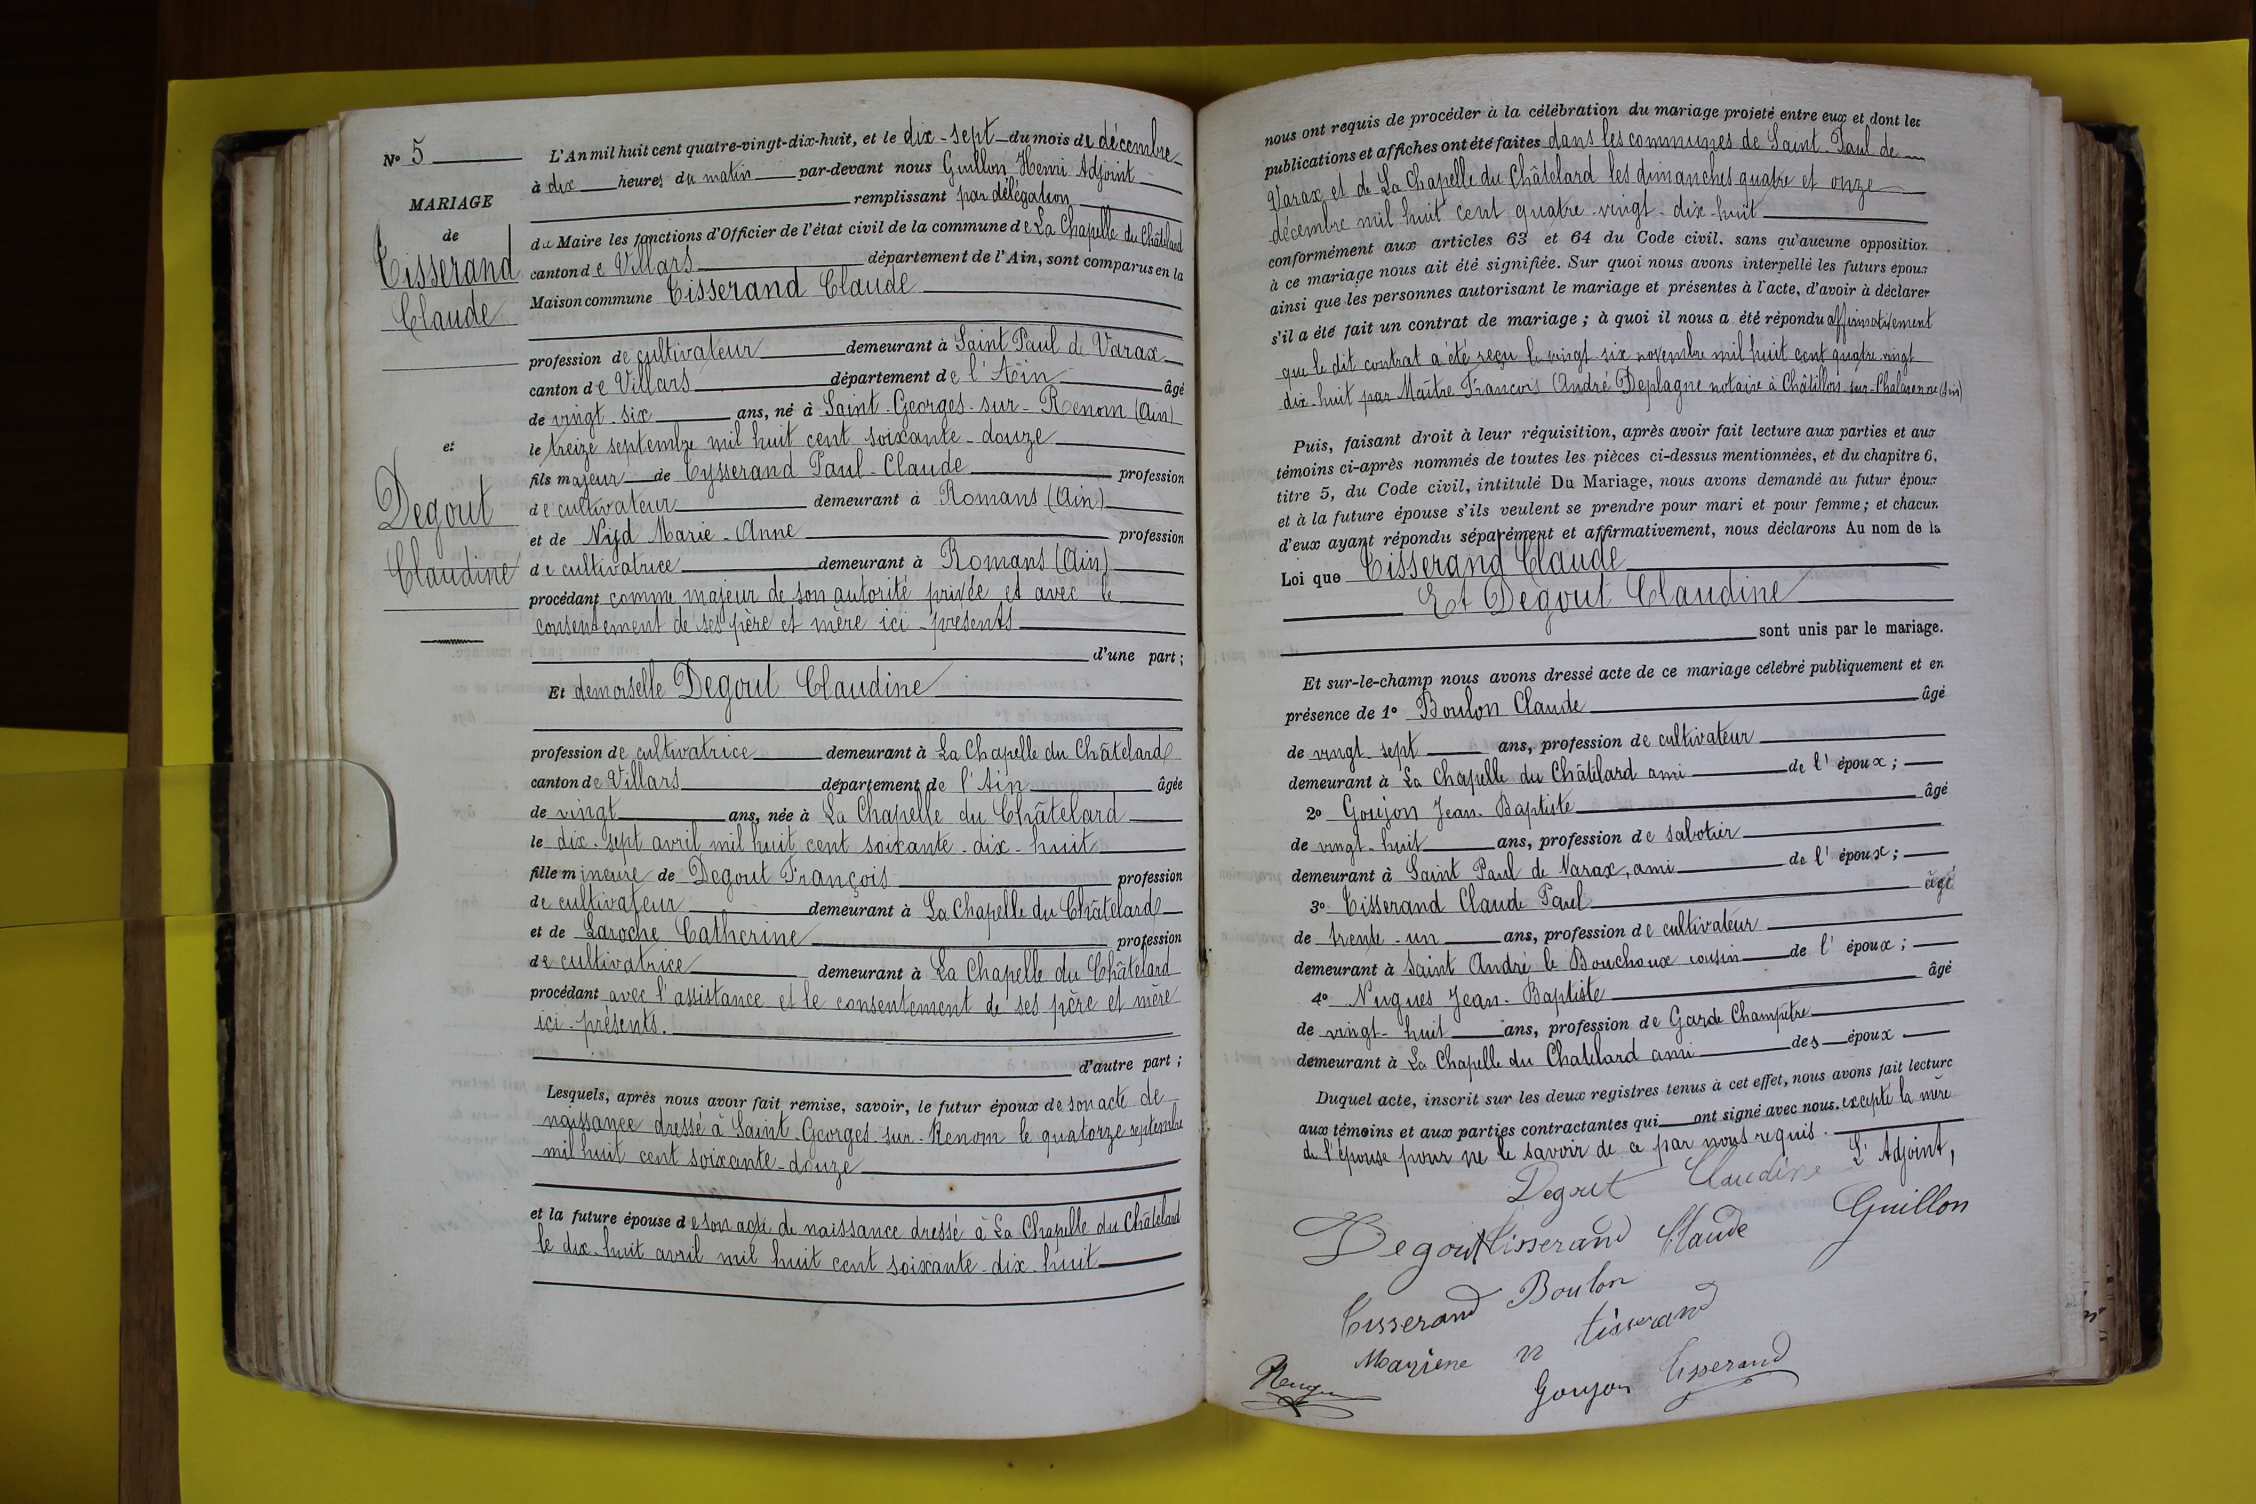 N° 5
MARIAGE
de
Tisserand
Claude
et
Degout
Claudine
L'An mil huit cent quatre-vingt-dix-huit, et le dix-sept du mois de décembre
à dix heures du matin par-devant nous Guillon Henri Adjoint
remplissant par délégation
du Maire les fonctions d'Officier de l'état civil de la commune de La Chapelle du Châtelard
canton de Villars département de l'Ain, sont comparus en la
Maison commune Tisserand Claude
profession de cultivateur demeurant à Saint Paul de Varax
canton de Villars département de l'Ain âgé
de vingt-six ans, né à Saint-Georges-sur-Renom (Ain)
le treize septembre mil huit cent soixante-douze
fils majeur de Tysserand Paul-Claude profession
de cultivateur demeurant à Romans (Ain)
et de Nyd Marie-Anne profession
de cultivatrice demeurant à Romans (Ain)
procédant comme majeur de son autorité privée et avec le
consentement de ses père et mère ici présents
d'une part ;
Et demoiselle Degout Claudine
profession de cultivatrice demeurant à La Chapelle du Châtelard
canton de Villars département de l'Ain âgée
de vingt ans, née à La Chapelle du Châtelard
le dix-sept avril mil huit cent soixante-dix-huit
fille mineure de Degout François profession
de cultivateur demeurant à La Chapelle du Châtelard
et de Laroche Catherine profession
de cultivatrice demeurant à La Chapelle du Châtelard
procédant avec l'assistance et le consentement de ses père et mère
ici-présents.
d'autre part ;
Lesquels, après nous avoir fait remise, savoir, le futur époux de son acte de
naissance dressé à Saint-Georges-sur-Renom le quatorze septembre
mil huit cent soixante-douze
et la future épouse de son acte de naissance dressé à La Chapelle du Châtelard
le dix-huit avril mil huit cent soixante-dix-huit
nous ont requis de procéder à la célébration du mariage projeté entre eux et dont les
publications et affiches ont été faites dans les communes de Saint-Paul de
Varax et de La Chapelle du Châtelard les dimanches quatre et onze
décembre mil huit cent quatre-vingt-dix-huit
conformément aux articles 63 et 64 du Code civil. sans qu'aucune opposition
à ce mariage nous ait été signifiée. Sur quoi nous avons interpellé les futurs époux
ainsi que les personnes autorisant le mariage et présentes à l'acte, d'avoir à déclarer
s'il a été fait un contrat de mariage ; à quoi il nous a été répondu affirmativement
que le dit contrat a été reçu le vingt-six novembre mil huit cent quatre-vingt
dix-huit par Maître François André Deplagne notaire à Châtillon-sur-Chalaronne (Ain)
Puis, faisant droit à leur réquisition, après avoir fait lecture aux parties et aux
témoins ci-après nommés de toutes les pièces ci-dessus mentionnées, et du chapitre 6,
titre 5, du Code civil, intitulé Du Mariage, nous avons demandé au futur époux
et à la future épouse s'ils veulent se prendre pour mari et pour femme ; et chacun
d'eux ayant répondu séparément et affirmativement, nous déclarons Au nom de la
Loi que Tisserand Claude
Et Degout Claudine
sont unis par le mariage.
Et sur-le-champ nous avons dressé acte de ce mariage célébré publiquement et en
présence de 1° Boulon Claude âgé
de vingt-sept ans, profession de cultivateur
demeurant à La Chapelle du Châtelard ami de l'époux ;
2° Goujon Jean-Baptiste âgé
de vingt-huit ans, profession de sabotier
demeurant à Saint Paul de Varax, ami de l'époux ;
3° Tisserand Claude Paul âgé
de trente-un ans, profession de cultivateur
demeurant à Saint André le Bouchoux cousin de l'époux ;
4° Nugues Jean-Baptiste âgé
de vingt-huit ans, profession de Garde Champêtre
demeurant à La Chapelle du Chatelard ami des époux
Duquel acte, inscrit sur les deux registres tenus à cet effet, nous avons fait lecture
aux témoins et aux parties contractantes qui ont signé avec nous. excepté la mère
de l'épouse pour ne le savoir de ce par nous requis.
Degout Claudine L'Adjoint,
Degout Tisserand Claude Guillon
Tisserand Boulon
tisserand
Goujon Tisserand